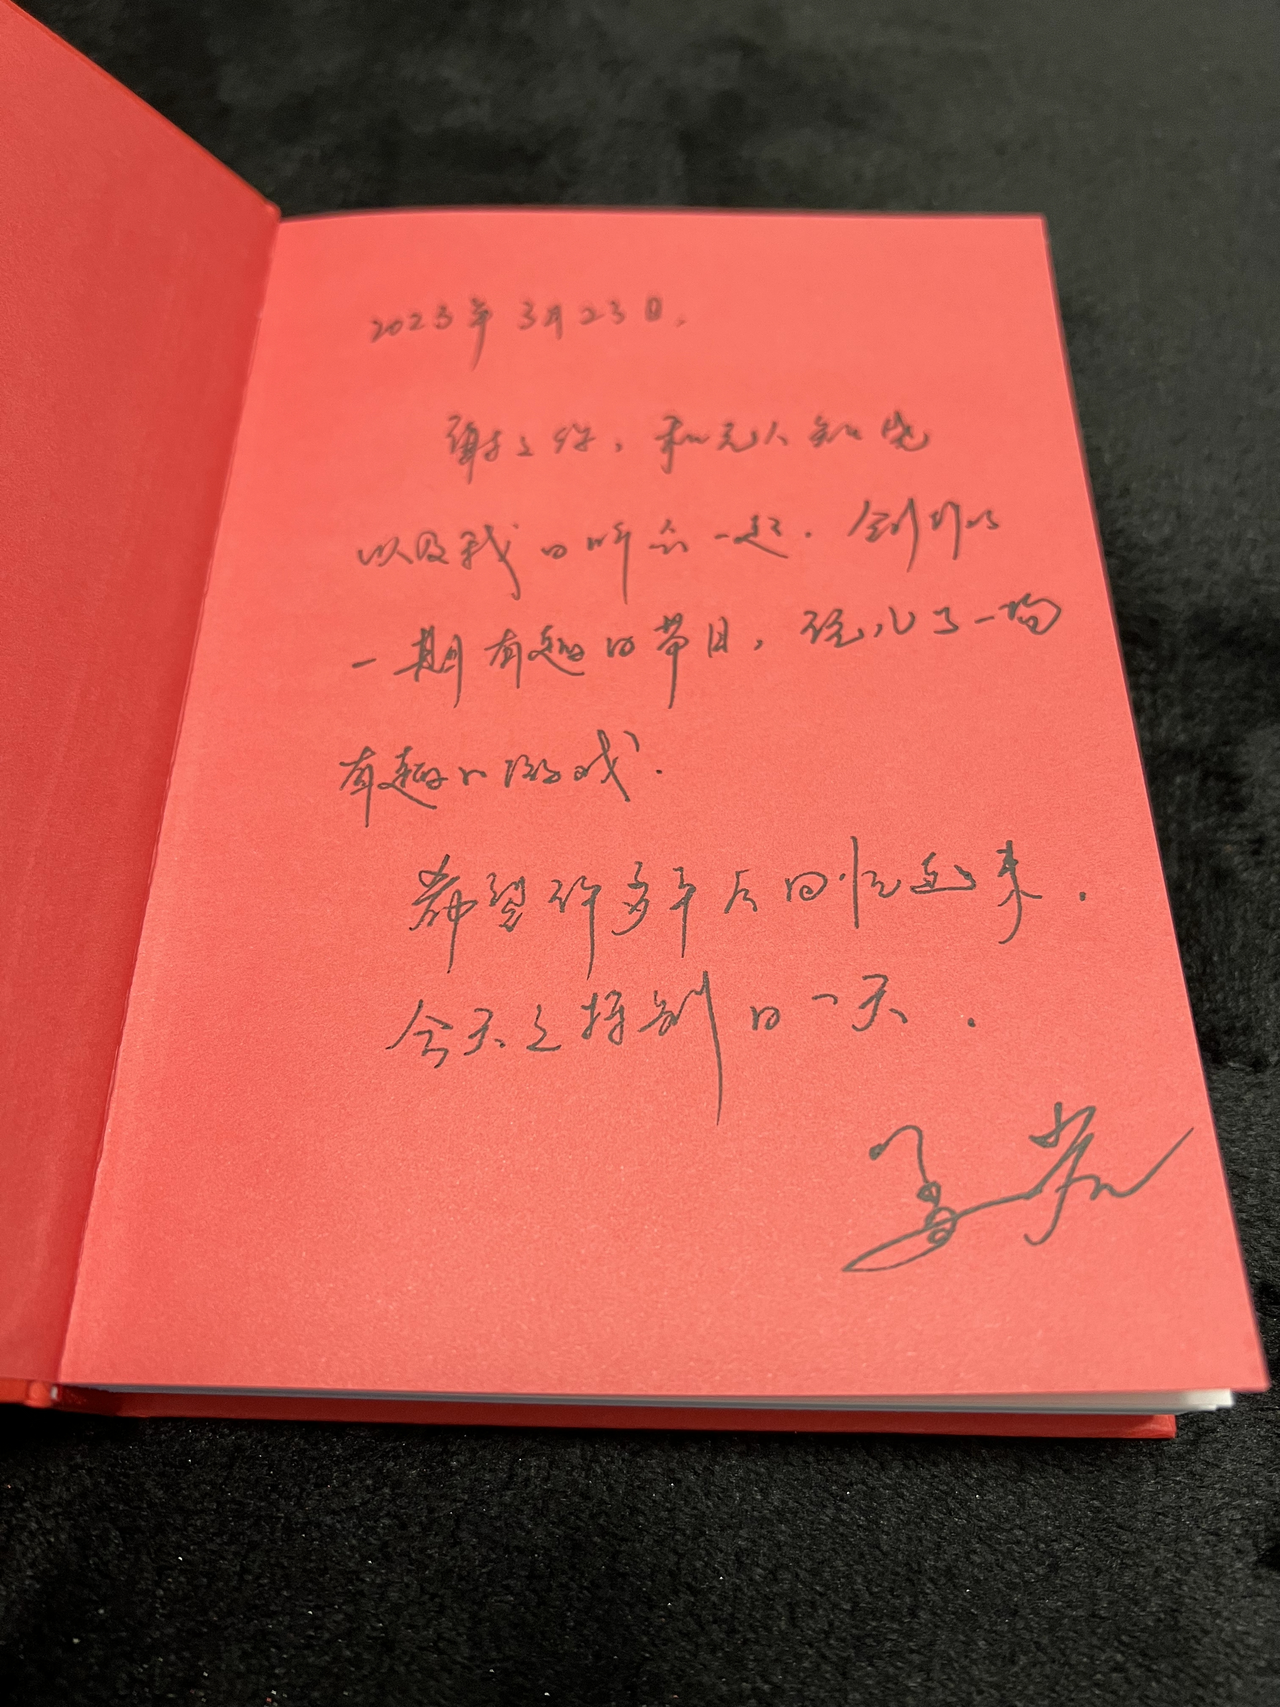 2023年3月23日,
谢谢你,和无人知晓
以及我的听众一起.创作
一期有趣的节目,玩儿了一场
有趣的游戏.
希望许多年后回忆起来.
今天是特别的一天.
孟岩